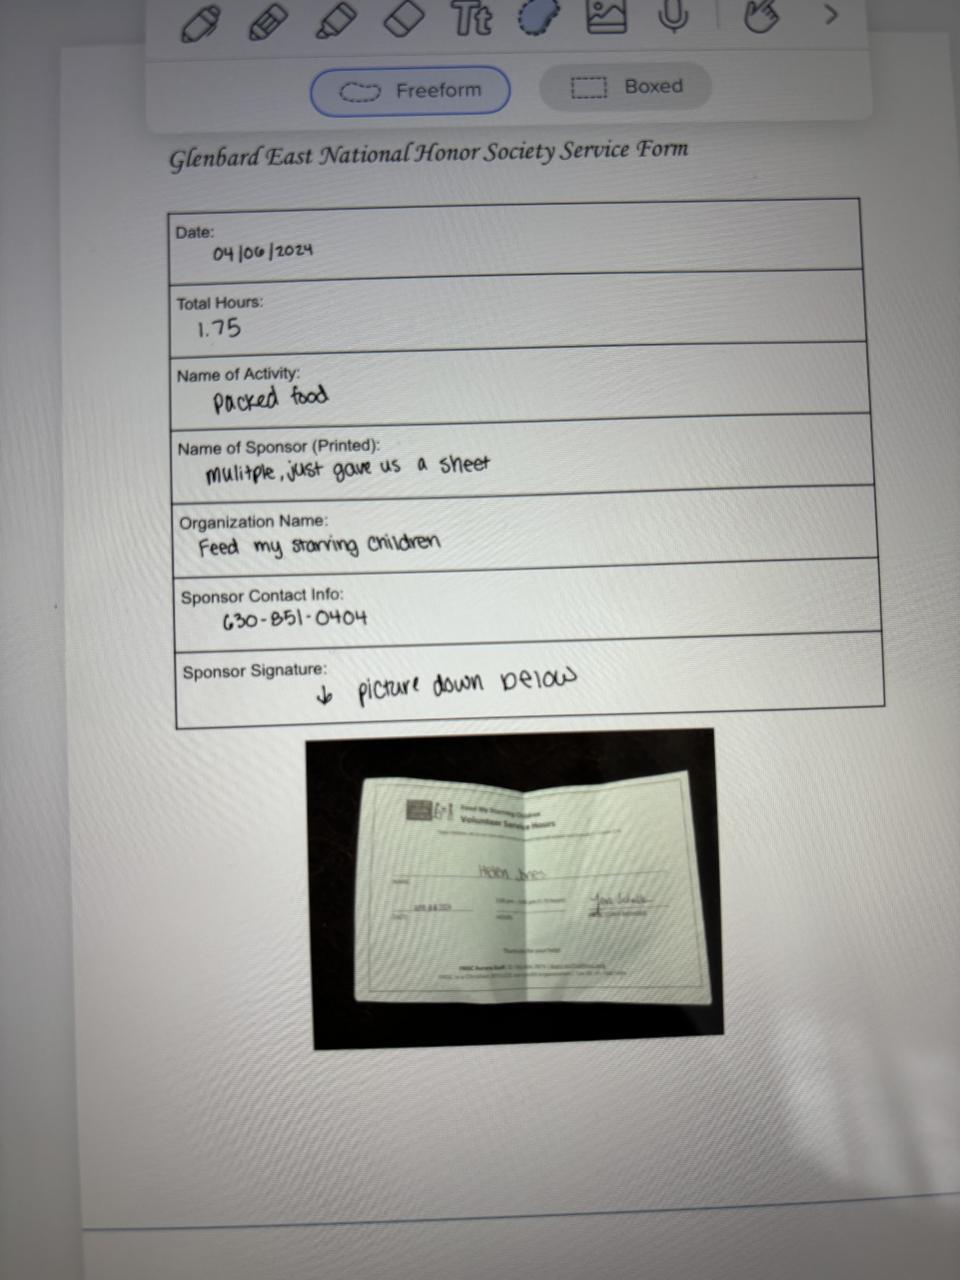 Tt
Freeform
Boxed
Glenbard East National Honor Society Service Form
Date:
04/06/2024
Total Hours:
1.75
Name of Activity:
packed food
Name of Sponsor (Printed):
mulitple, just gave us a sheet
Organization Name:
Feed my starving children
Sponsor Contact Info:
630-851-0404
Sponsor Signature:
↓ picture down below
Feed My Starving Children
Volunteer Service Hours
Helen Jones
NAME
DATE
HOURS
Thank you for your help!